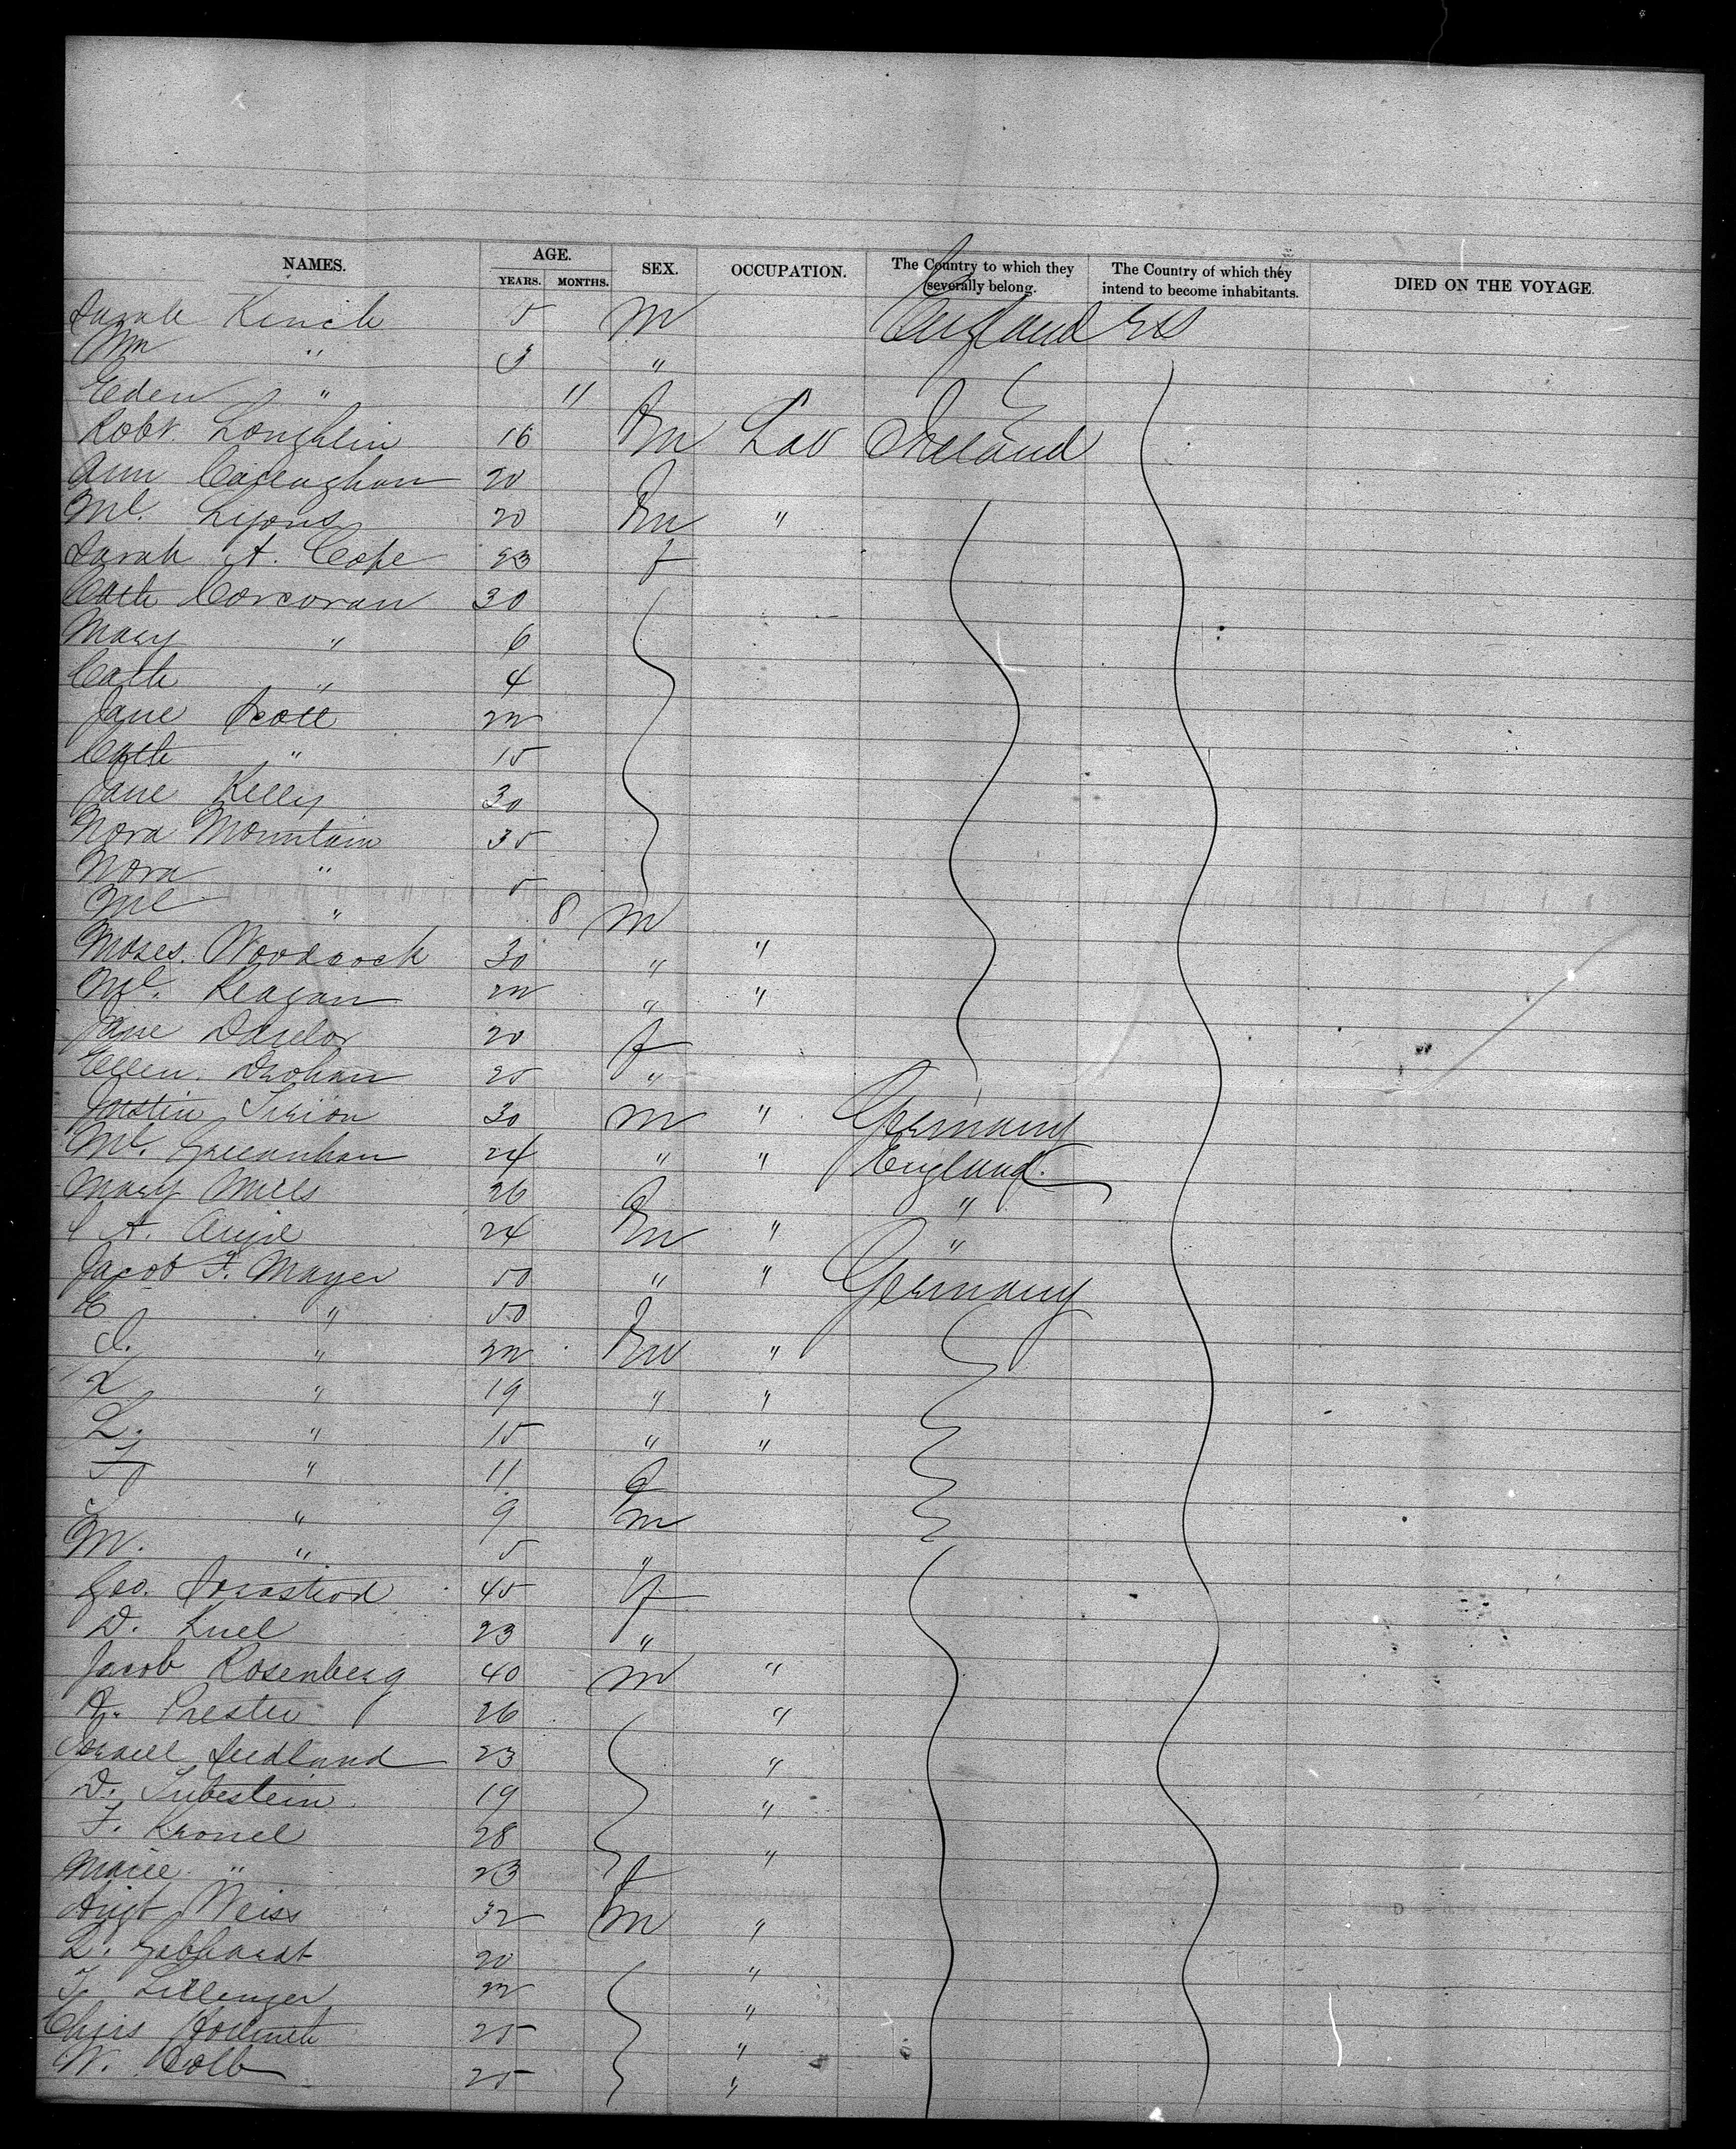 NAMES. AGE. YEARS. MONTHS. SEX. OCCUPATION. The Country to which they severally belong. The Country of which they intend to become inhabitants. DIED ON THE VOYAGE.
Sarah Kinch 5 m England US
Wm " 3 "
Eden " 11 f
Robt. Loughlin 16 m Lab Ireland
Ann Callaghan 20 f
Ml. Lyons 20 m "
Sarah A. Cope 23 f
Cath Corcoran 30
Mary " 6
Cath " 4
Jane Scott 22
Cath " 15
Jane Kelly 30
Nora Mountain 35
Nora " 5
Ml " 8 m
Moses Woodcock 30 " "
Ml. Reagan 22 " "
Jane 20 f
Ellen Drohan 25 "
30 m " Germany
Ml. 24 " " England
Mary Mills 26 f "
A. 24 m " "
Jacob F. Mayer 50 " " Germany
E " 50 f
" 22 m "
L " 19 " "
L. " 15 " "
F " 11 f
" 9 m
M. " 5 "
Geo. 45 f
D. 23 "
Jacob Rosenberg 40 m "
A. 26 "
23 "
D. 19 "
F. Kronel 28 "
" 23 f
Augt Weiss 32 m "
L. Gebhardt 20 "
F. 22 "
Chris 25 "
W. Kolb 25 "